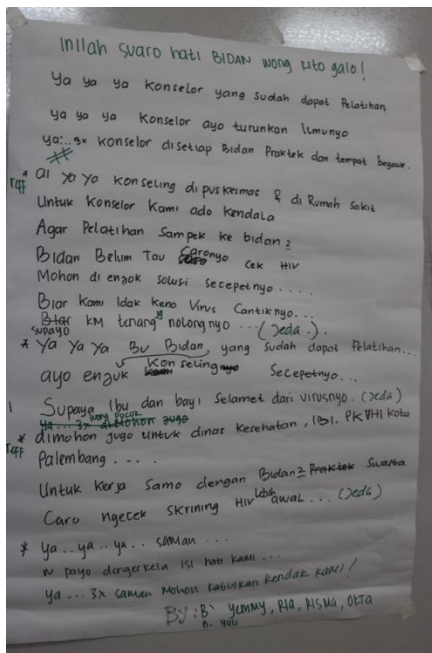 Inilah suaro hati BIDAN wong kito galo!
Ya ya ya Konselor yang sudah dapat Pelatihan
ya ya ya Konselor ayo turunkan Ilmunyo
ya... 3x Konselor disetiap Bidan Praktek dan tempat begawe.
Reff * ai ya ya Konseling di puskesmas & di Rumah Sakit
Untuk Konselor Kami ado Kendala
Agar Pelatihan Sampek ke bidan2
Bidan Belum Tau Caronyo cek HIV
Mohon di enjok solusi secepetnyo ....
Biar Kami Idak Keno Virus Cantiknyo...
Supayo KM tenang2 nolongnyo ... (Jeda.).
* Ya Ya Ya Bu Bidan, yang sudah dapat Pelatihan...
ayo enjuk Konseling Secepetnyo...
Supaya Ibu dan bayi Selamet dari virusnyo. (Jeda)
ya... 3x wong
Reff * dimohon jugo Untuk dinas Kesehatan, IBI. PKVHI Kota
Palembang ....
Untuk Kerja Samo dengan Bidan2 Praktek Swasta
Caro ngecek Skrining HIV Lebih awal ... (Jeda)
* Ya .. ya .. ya .. saman ...
payo dengerkela isi hati kami ...
ya ... 3x saman Mohon Kabulkan Kendak KAMI!
By : B' yemmy, RIA, RISMA, OKTA
B. yuli